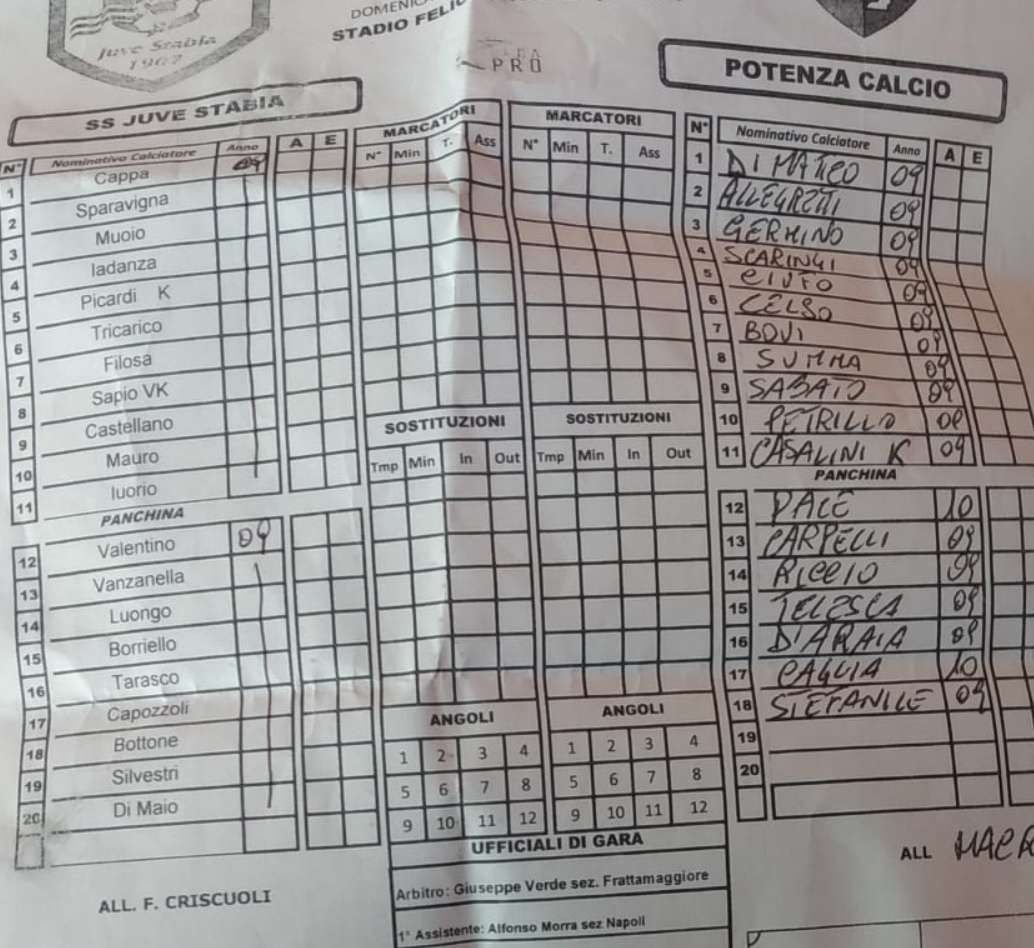 Juve Stabia
1907
DOMENIC
STADIO FELIC
PRO
SS JUVE STABIA
N° Nominativo Calciatore Anno A E
1 Cappa 09
2 Sparavigna
3 Muoio
4 Iadanza
5 Picardi K
6 Tricarico
7 Filosa
8 Sapio VK
9 Castellano
10 Mauro
11 Iuorio
PANCHINA
12 Valentino 09
13 Vanzanella
14 Luongo
15 Borriello
16 Tarasco
17 Capozzoli
18 Bottone
19 Silvestri
20 Di Maio
ALL. F. CRISCUOLI
MARCATORI
N° Min T. Ass
MARCATORI
N° Min T. Ass
SOSTITUZIONI
Tmp Min In Out
SOSTITUZIONI
Tmp Min In Out
ANGOLI
1 2 3 4
5 6 7 8
9 10 11 12
ANGOLI
1 2 3 4
5 6 7 8
9 10 11 12
UFFICIALI DI GARA
Arbitro: Giuseppe Verde sez. Frattamaggiore
1° Assistente: Alfonso Morra sez Napoli
POTENZA CALCIO
N° Nominativo Calciatore Anno A E
1 DI MATTEO 09
2 ALLEGRETTI 09
3 GERMINO 09
4 SCARINGI 09
5 CIUFO 09
6 CELSO 09
7 BOVI 09
8 SUMMA 09
9 SABATO 09
10 PETRILLO 09
11 CASALINI K 09
PANCHINA
12 PACE 10
13 CARPELLI 09
14 RICCIO 09
15 TELESCA 09
16 D'ARAIA 09
17 CAGLIA 10
18 STEFANILE 09
19
20
ALL